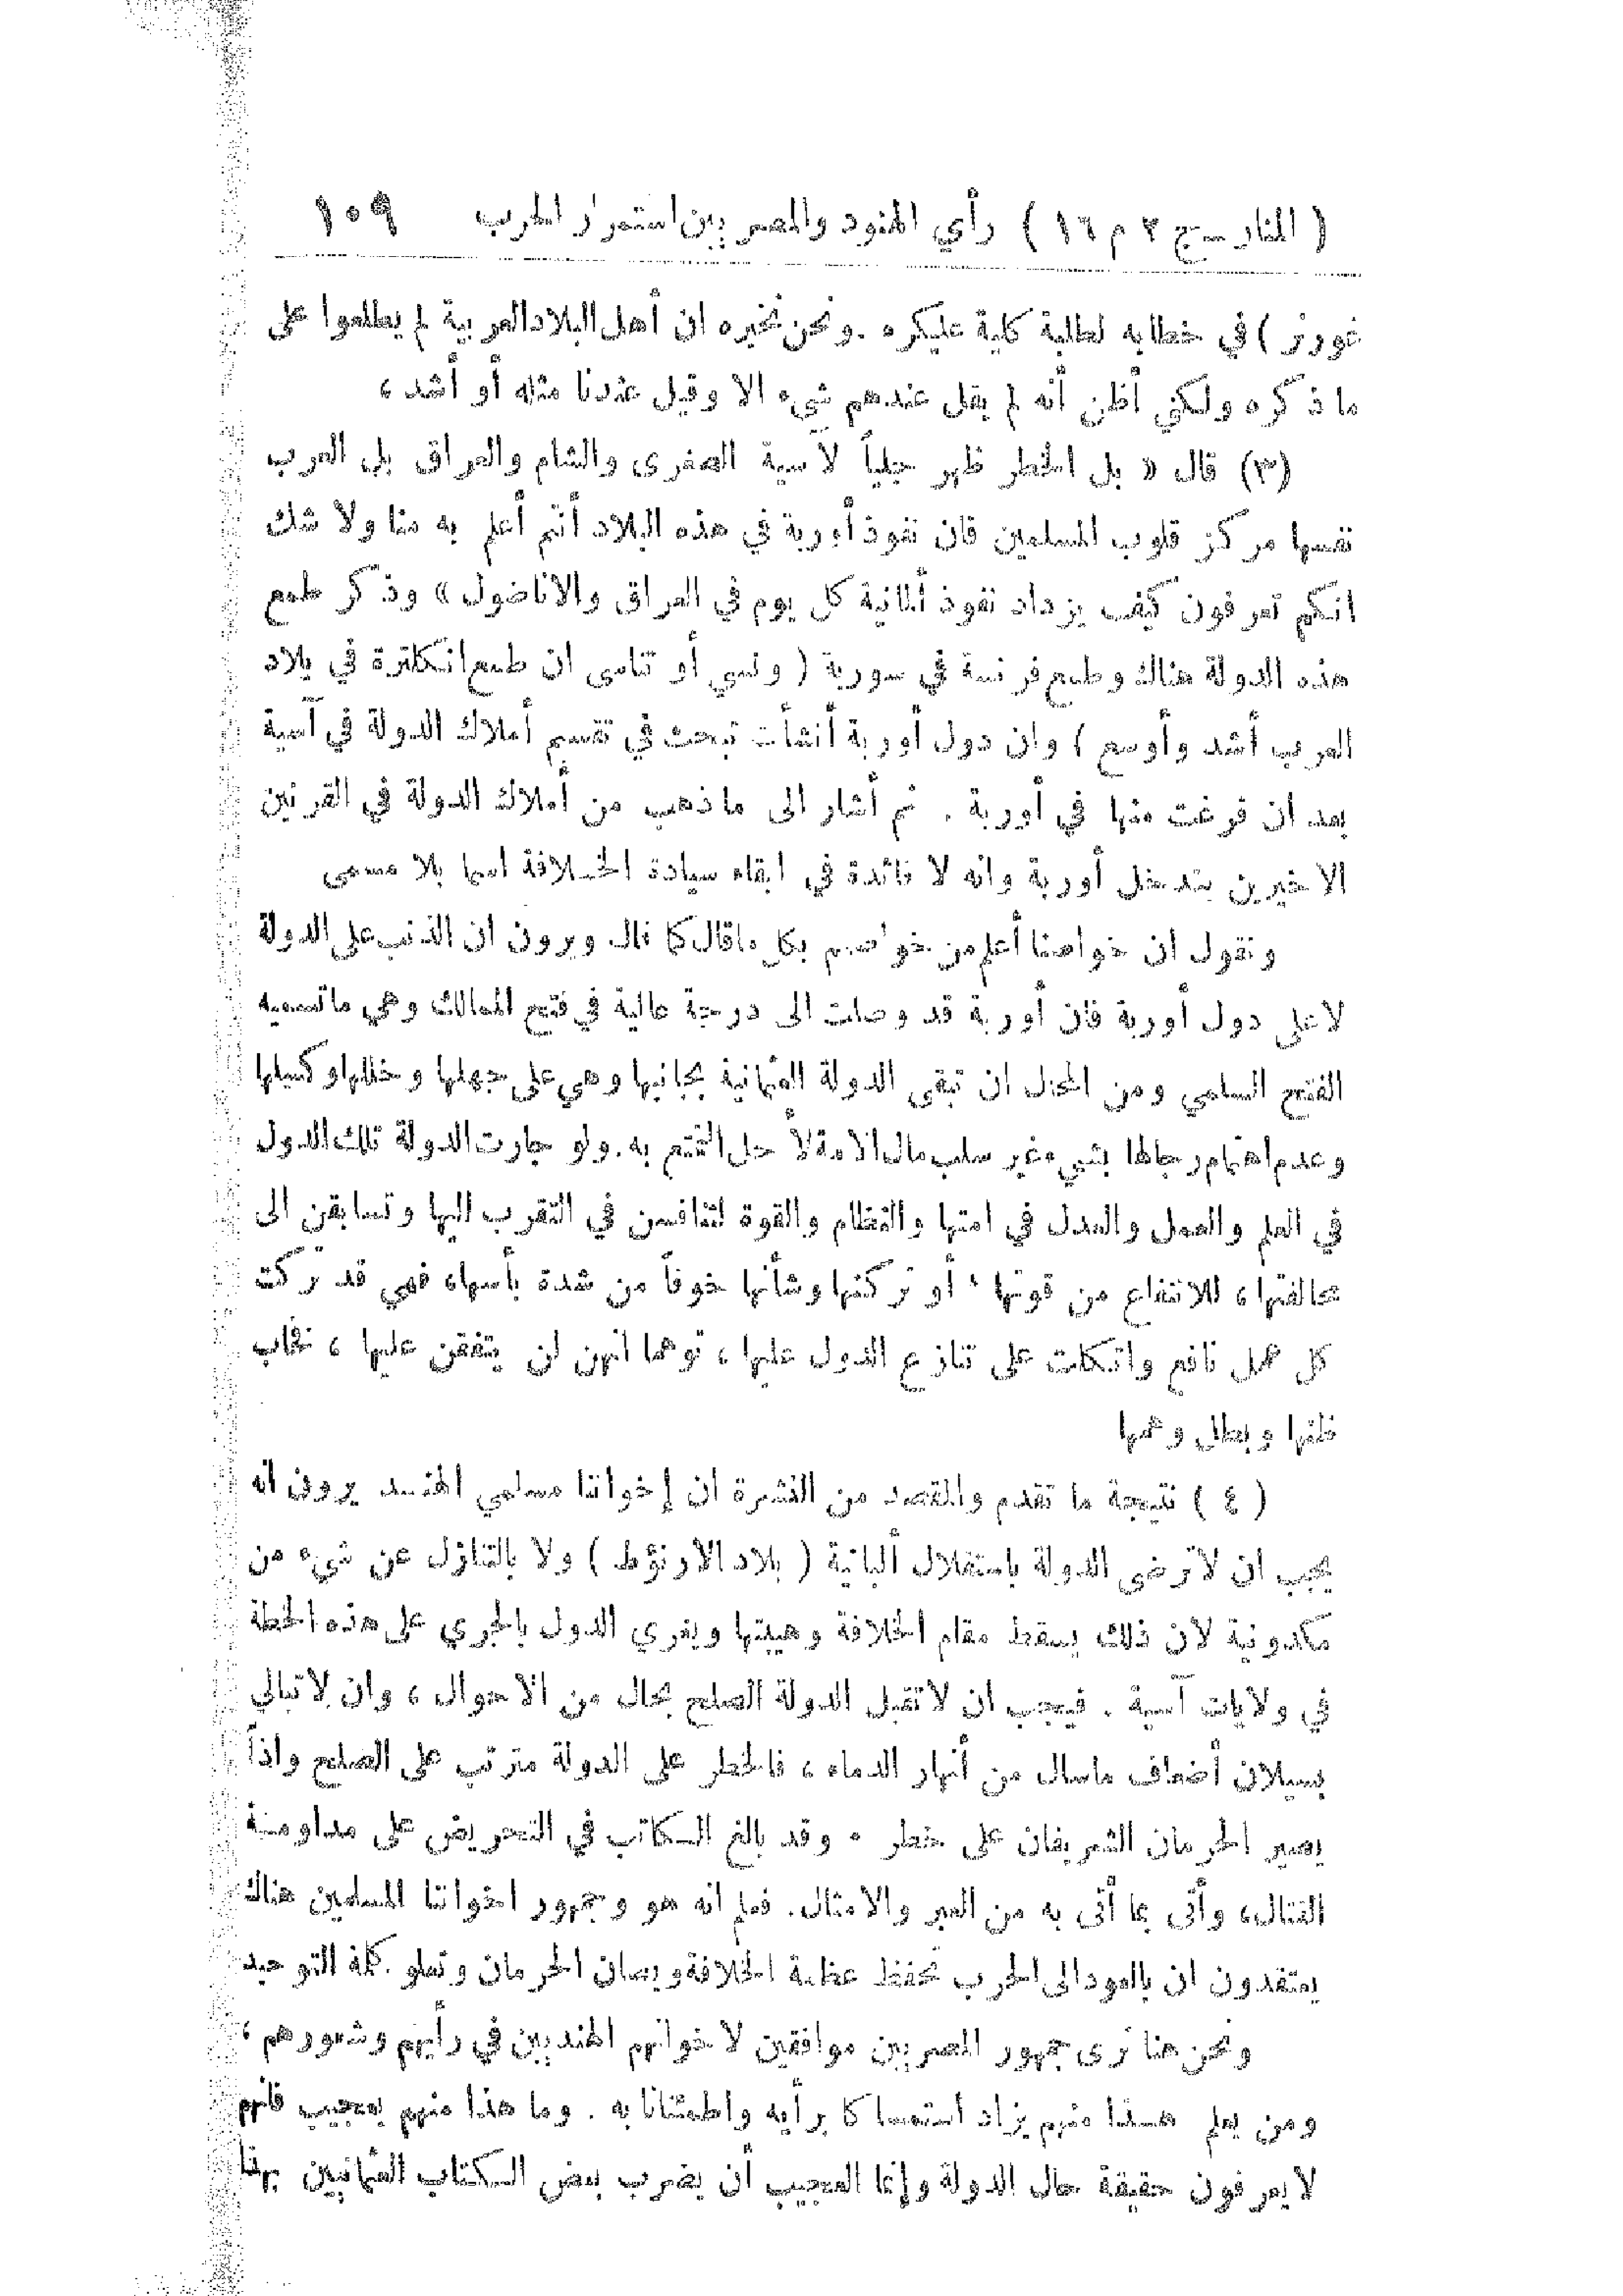 ( المنار ـ ج ٢ م ١٦ ) رأي الهنود والمصريين استمرار الحرب ١٠٩
غورز ) في خطابه لطلبة كلية عليكره . ونحن نخبره ان أهل البلاد العربية لم يطلعوا على
ما ذكره ولكني أظن أنه لم يقل عندهم شيء الا وقيل عندنا مثله أو أشد ،
(٣) قال « بل الخطر ظهر جلياً لآسية الصغرى والشام والعراق بل العرب
نفسها مركز قلوب المسلمين فان نفوذ أوربة في هذه البلاد أنتم أعلم به منا ولا شك
انكم تعرفون كيف يزداد نفوذ ألمانية كل يوم في العراق والاناضول » وذكر طمع
هذه الدولة هناك وطمع فرنسة في سورية ( ونسي أو تناسى ان طمع انكلترة في بلاد
العرب أشد وأوسع ) وان دول أوربة أنشأت تبحث في تقسيم أملاك الدولة في آسية
بعد ان فرغت منها في أوربة . ثم أشار الى ما ذهب من أملاك الدولة في القرنين
الاخيرين بتدخل أوربة وانه لا فائدة في ابقاء سيادة الخلافة اسما بلا مسمى
ونقول ان خواصنا أعلم من خواصهم بكل ما قال كما قال ويرون ان الذنب على الدولة
لا على دول أوربة فان أوربة قد وصلت الى درجة عالية في فتح الممالك وهي ما تسميه
الفتح السلمي ومن المحال ان تبقى الدولة العثمانية بجانبها وهي على جهلها وخللها وكسلها
وعدم اهتمام رجالها بشيء غير سلب مال الامة لأجل التمتع به . ولو جارت الدولة تلك الدول
في العلم والعمل والعدل في امتها والنظام والقوة لتنافسن في التقرب اليها وتسابقن الى
محالفتها ، للانتفاع من قوتها ، أو تركنها وشأنها خوفاً من شدة بأسها ، فهي قد تركت
كل عمل نافع واتكلت على تنازع الدول عليها ، توهما انهن لن يتفقن عليها ، فخاب
ظنها وبطل وهمها
( ٤ ) نتيجة ما تقدم والمقصد من النشرة ان إخواننا مسلمي الهند يرون أنه
يجب ان لا ترضى الدولة باستقلال ألبانية ( بلاد الارنؤط ) ولا بالتنازل عن شيء من
مكدونية لان ذلك يسقط مقام الخلافة وهيبتها ويغري الدول بالجري على هذه الخطة
في ولايات آسية . فيجب ان لا تقبل الدولة الصلح بحال من الاحوال ، وان لا تبالي
بسيلان أضعاف ما سال من أنهار الدماء ، فالخطر على الدولة مترتب على الصلح واذاً
يصير الحرمان الشريفان على خطر . وقد بالغ الكاتب في التحريض على مداومة
القتال ، وأتى بما أتى به من العبر والامثال . فعلم انه هو وجمهور اخواننا المسلمين هناك
يعتقدون ان بالعود الى الحرب تحفظ عظمة الخلافة ويصان الحرمان وتعلو كلمة التوحيد
ونحن هنا نرى جمهور المصريين موافقين لاخوانهم الهنديين في رأيهم وشعورهم ،
ومن يعلم هذا منهم يزاد استمساكا برأيه واطمئنانا به . وما هذا منهم بعجيب فانهم
لا يعرفون حقيقة حال الدولة وإنما العجيب أن يضرب بعض الكتاب العثمانيين بهذا